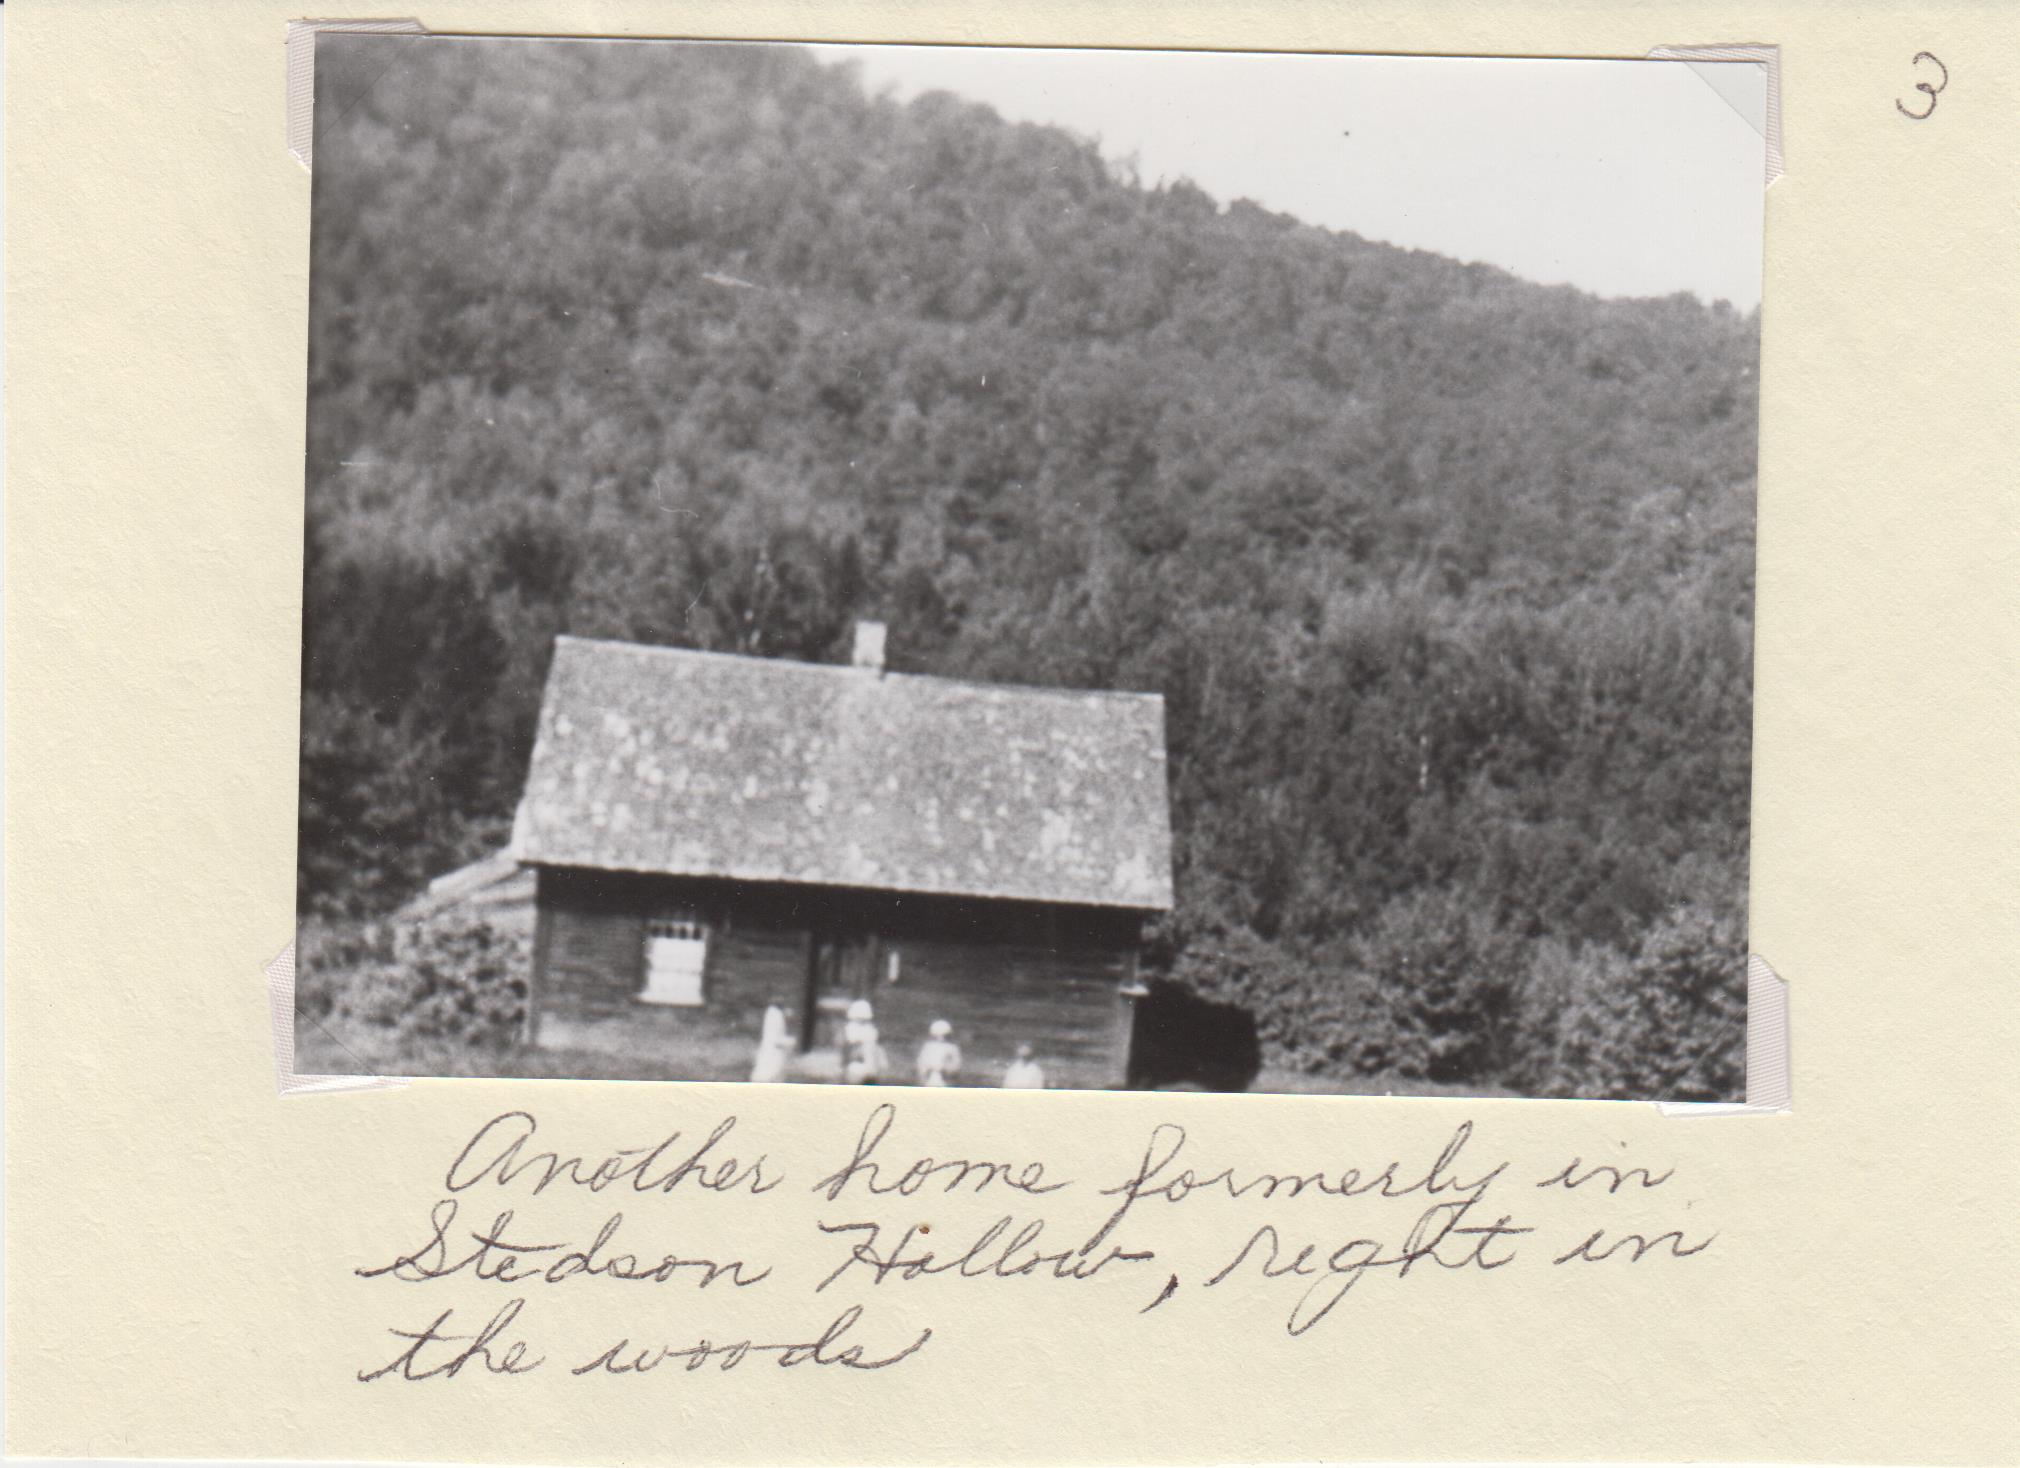 3
Another home formerly in
Stedson Hollow, right in
the woods